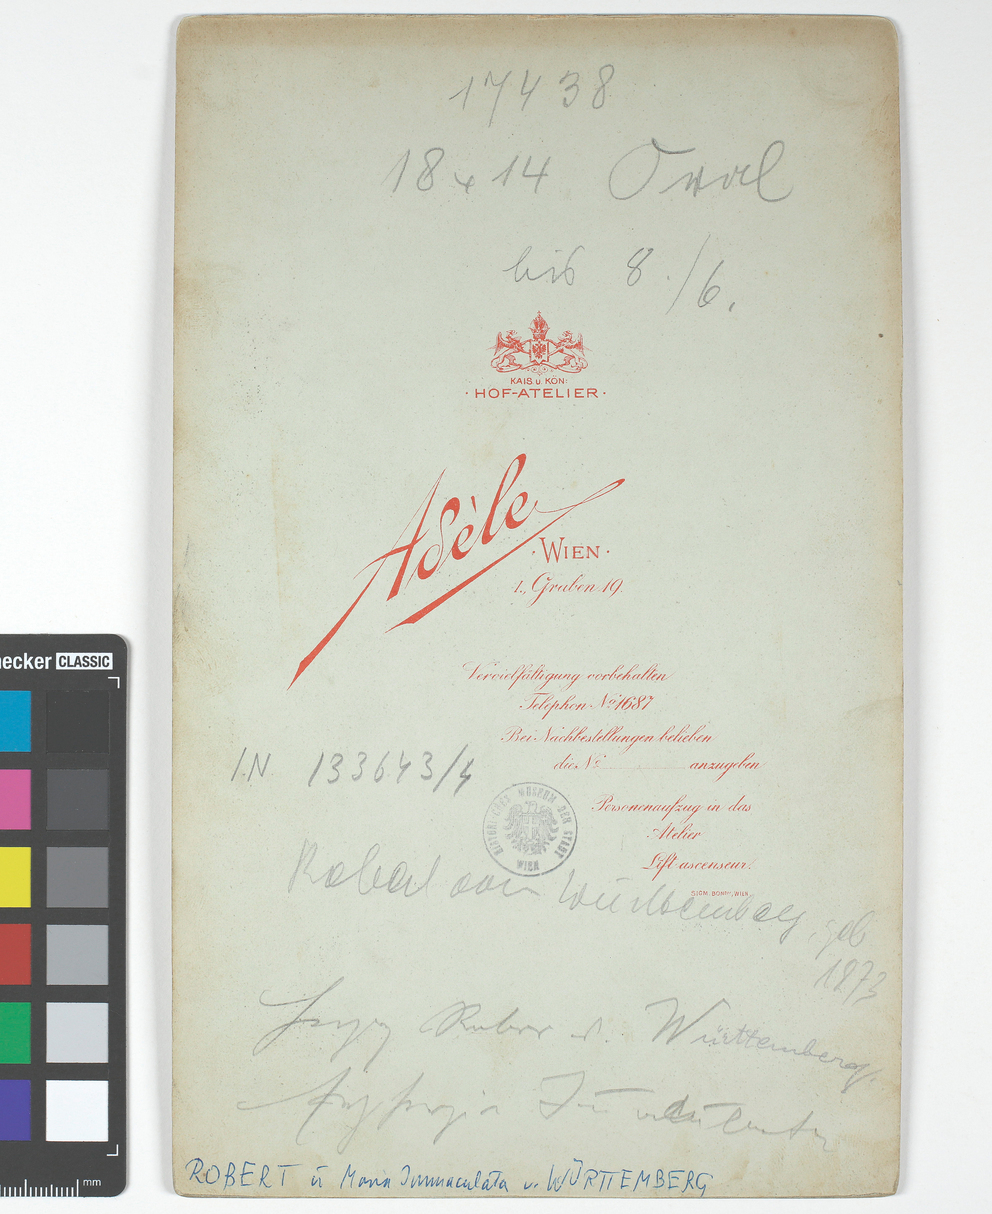 17438
18 x 14 Oval
bis 8./6.
KAIS. u. KÖN:
· HOF-ATELIER ·
Adèle
· WIEN ·
1., Graben 19.
Vervielfältigung vorbehalten
Telephon No. 1687
Bei Nachbestellungen belieben
die No. anzugeben
I.N 133643/4
Personenaufzug in das
Atelier
Lift-ascenseur.
HISTORISCHES MUSEUM DER STADT WIEN
Robert von Württemberg, geb
1873
Herzog Robert v. Württemberg.
ROBERT u Maria Immaculata v. WÜRTTEMBERG
ecker CLASSIC
mm